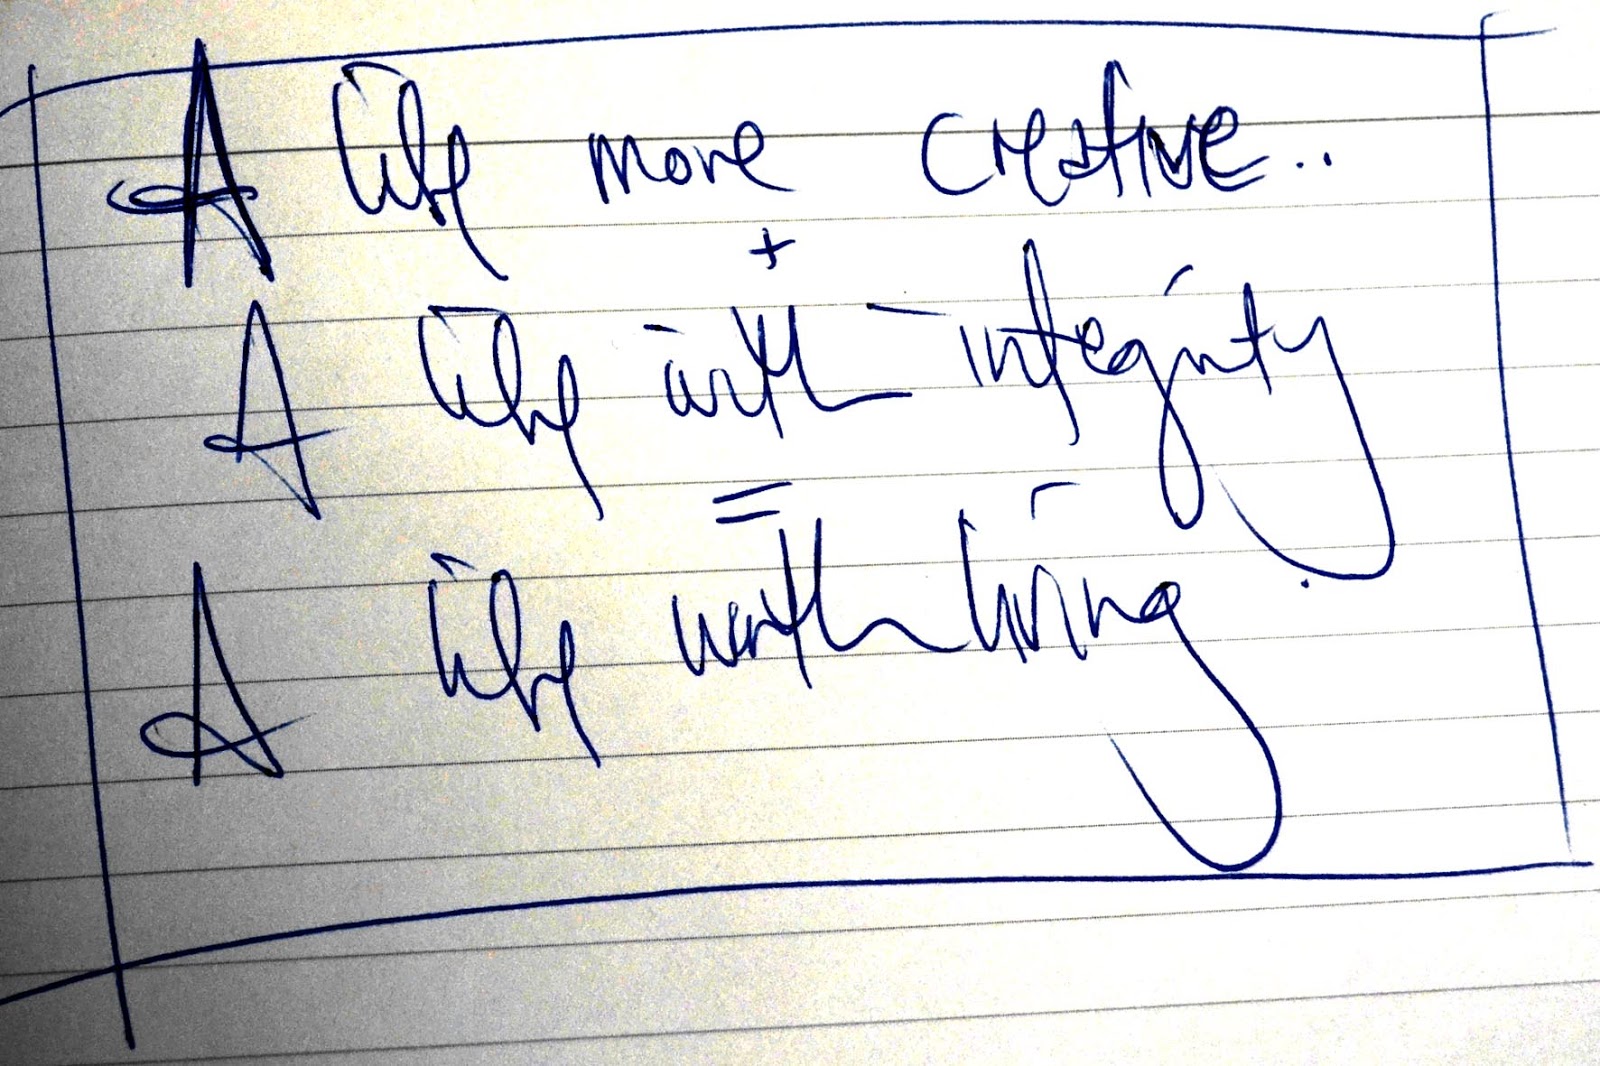 A life more creative..
+
A life with integrity
=
A life worth living.